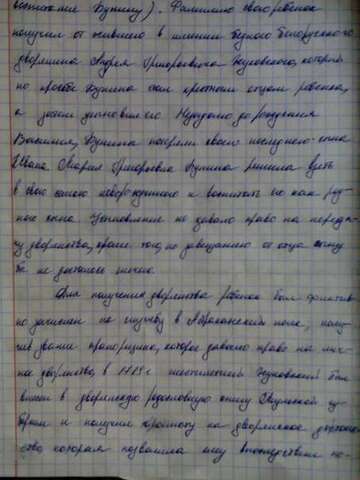 воспитание Бунину). Фамилию свою ребенок
получил от жившего в имении бедного белорусского
дворянина Андрея Григорьевича Жуковского, который
по просьбе Бунина стал крестным отцом ребенка,
а затем усыновил его. Незадолго до рождения
Василия, Бунины потеряли своего последнего сына
Ивана. Мария Григорьевна Бунина решила взять
в свою семью новорожденного и воспитать его как род-
ного сына. Усыновление не давало право на переда-
чу дворянства, кроме того, по завещанию от отца
не досталось ничего.
Для получения дворянства ребенок был фиктив-
но зачислен на службу в Астраханский полк, полу-
чив звание прапорщика, которое давало право на лич-
ное дворянство, в 1789 г. шестилетний Жуковский был
внесен в дворянскую родословную книгу Тульской гу-
бернии и получил грамоту на дворянское достоин-
ство, которая позволила ему впоследствии по-